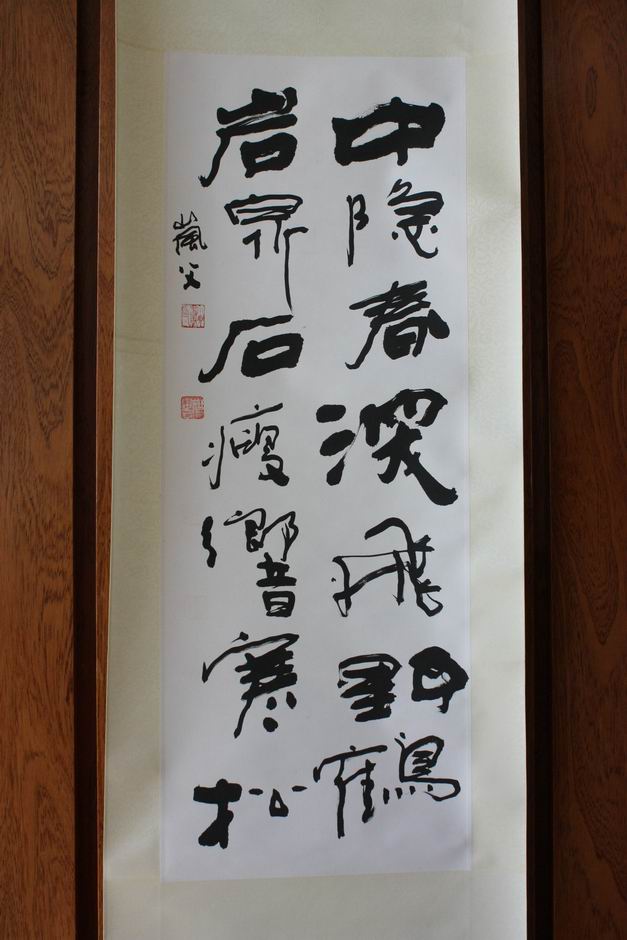 中隐春深飛野鶴
岩泉石瘦響寒松
嵐父